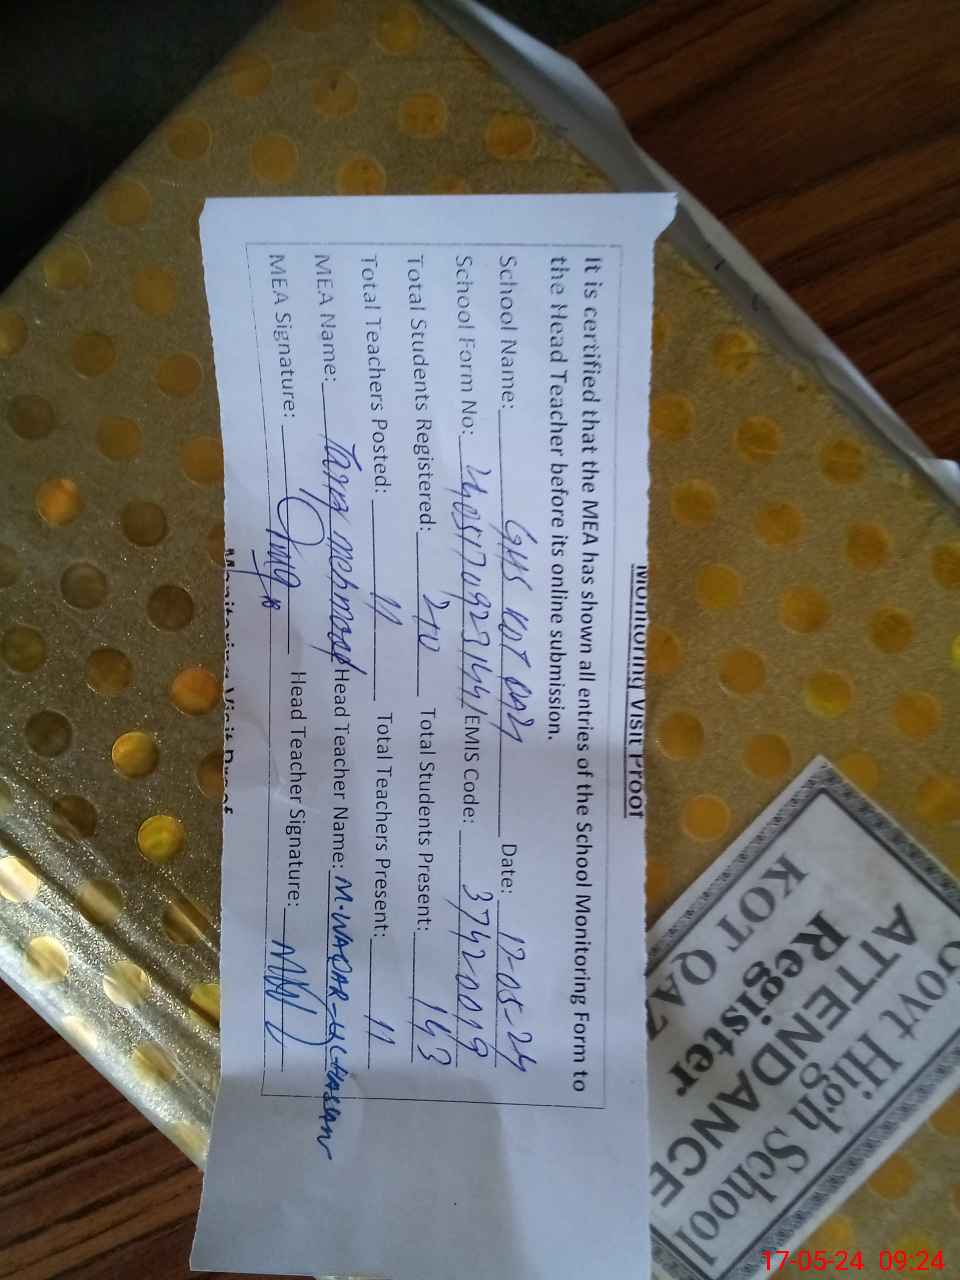 Monitoring Visit Proof
It is certified that the MEA has shown all entries of the School Monitoring Form to
the Head Teacher before its online submission.
School Name: GHS KOT QAZI Date: 17-05-24
School Form No: EMIS Code: 37420019
Total Students Registered: 210 Total Students Present: 143
Total Teachers Posted: 11 Total Teachers Present: 11
MEA Name: Tariq Mehmood Head Teacher Name: M. WAQAR-UL-HASSAN
MEA Signature: Head Teacher Signature:
Monitoring Visit Proof
Govt High School
ATTENDANCE
Register
KOT QAZ
17-05-24 09:24